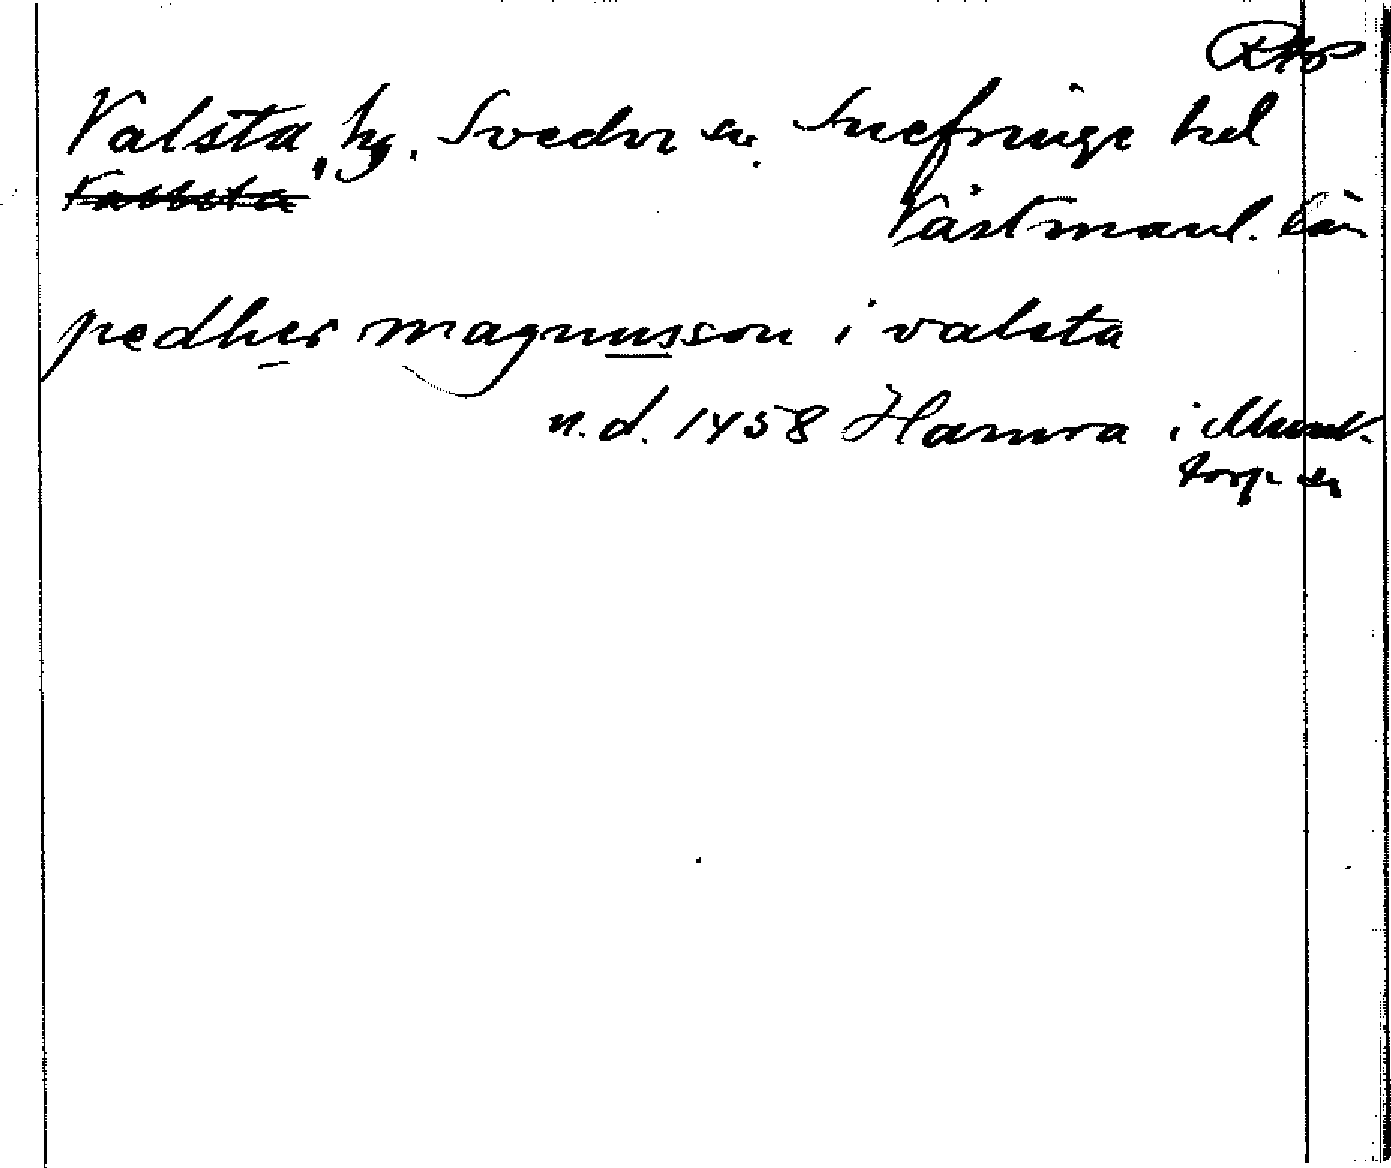 RAp
Valsta, hg. Svedvi sn. Snefringe hd
Valsta
Västmanl. län
pedher magnusson i valsta
n.d. 1458 Hamra i Munk-
torp sn